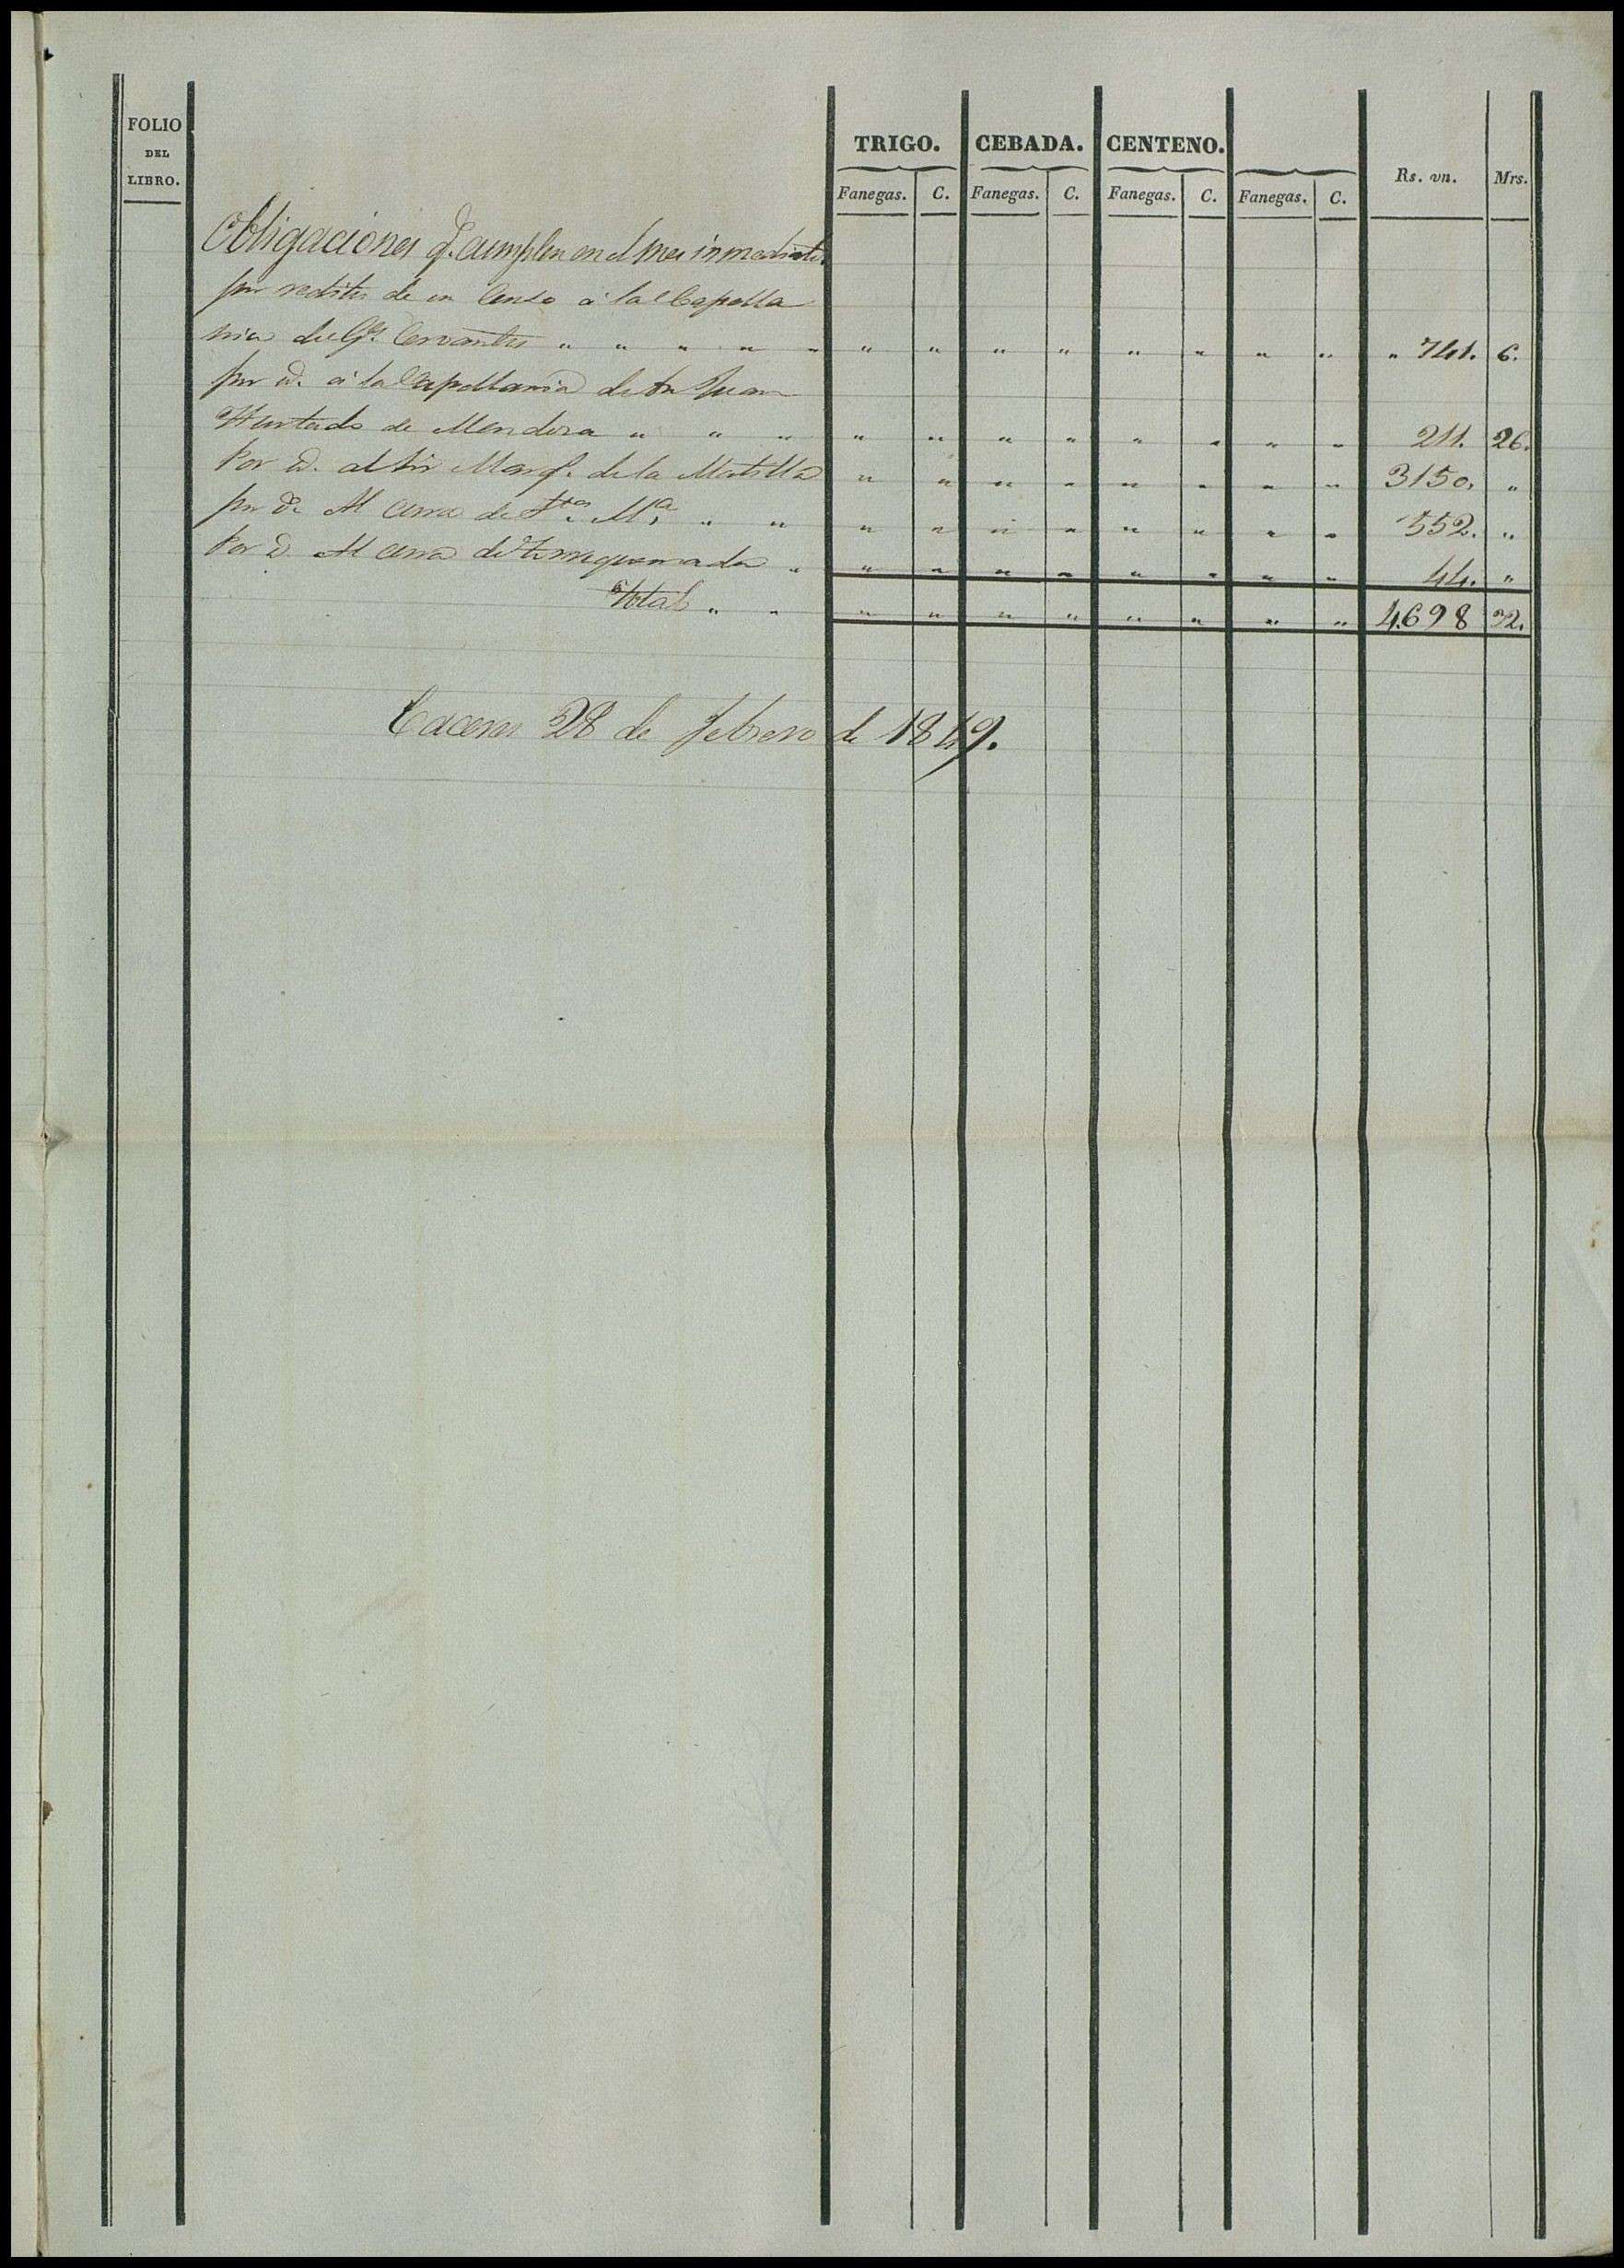 FOLIO
DEL
LIBRO.
TRIGO. CEBADA. CENTENO.
Fanegas. C. Fanegas. C. Fanegas. C. Fanegas. C. Rs. vn. Mrs.
Obligaciones q.e cumplen en el mes inmediato.
por reditos de un Censo á la Capella
nia de Gs. Cervantes " " " " " " " " " " " " " " 741. 6.
por id. á la Capellania de Dn Juan
Hurtado de Mendoza " " " " " " " " " " " 211. 26.
Por id. al Sor Marqs. de la Matilla " " " " " " " " 3150. "
por id. Al cura de Sta. Ma. " " " " " " " " " " 552. "
Por id. Al cura de Torrequemada " " " " " " " " " 44. "
Total " " " " " " " " " " 4.698 32.
Caceres 28 de Febrero de 1849.